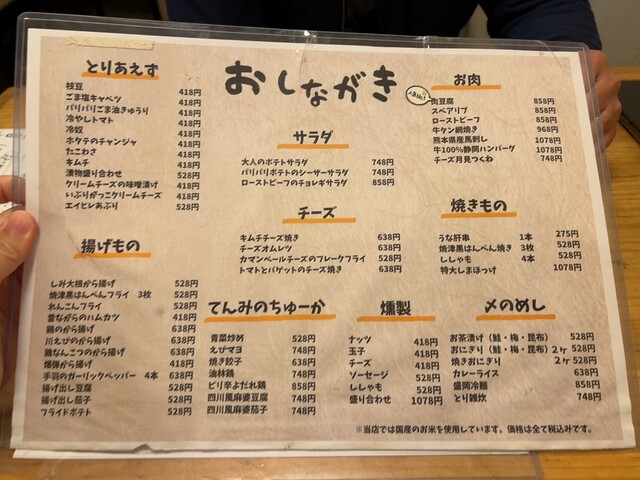 おしながき
とりあえず
枝豆 418円
ごま塩キャベツ 418円
パリパリごま油きゅうり 418円
冷やしトマト 418円
冷奴 418円
ホタテのチャンジャ 418円
たこわさ 418円
キムチ 418円
漬物盛り合わせ 528円
クリームチーズの味噌漬け 418円
いぶりがっこクリームチーズ 418円
エイヒレあぶり 528円
サラダ
大人のポテトサラダ 748円
パリパリポテトのシーザーサラダ 748円
ローストビーフのチョレギサラダ 858円
お肉
人気No.1
肉豆腐 858円
スペアリブ 858円
ローストビーフ 858円
牛タン網焼き 968円
熊本県産馬刺し 1078円
牛100%静岡ハンバーグ 1078円
チーズ月見つくね 748円
チーズ
キムチチーズ焼き 638円
チーズオムレツ 638円
カマンベールチーズのフレークフライ 528円
トマトとバゲットのチーズ焼き 638円
焼きもの
うな肝串 1本 275円
焼津黒はんぺん焼き 3枚 528円
ししゃも 4本 528円
特大しまほっけ 1078円
揚げもの
しみ大根から揚げ 528円
焼津黒はんぺんフライ 3枚 528円
れんこんフライ 528円
昔ながらのハムカツ 418円
鶏のから揚げ 638円
川えびのから揚げ 638円
鶏なんこつのから揚げ 638円
爆弾から揚げ 418円
手羽のガーリックペッパー 4本 638円
揚げ出し豆腐 528円
揚げ出し茄子 528円
フライドポテト 528円
てんみのちゅーか
青菜炒め 528円
えびマヨ 748円
焼き餃子 638円
油淋鶏 748円
ピリ辛よだれ鶏 858円
四川風麻婆豆腐 748円
四川風麻婆茄子 748円
燻製
ナッツ 418円
玉子 418円
チーズ 418円
ソーセージ 528円
ししゃも 528円
盛り合わせ 1078円
〆のめし
お茶漬け（鮭・梅・昆布） 528円
おにぎり（鮭・梅・昆布）2ヶ 528円
焼きおにぎり 2ヶ 528円
カレーライス 638円
盛岡冷麺 858円
とり雑炊 748円
※当店では国産のお米を使用しています。価格は全て税込みです。